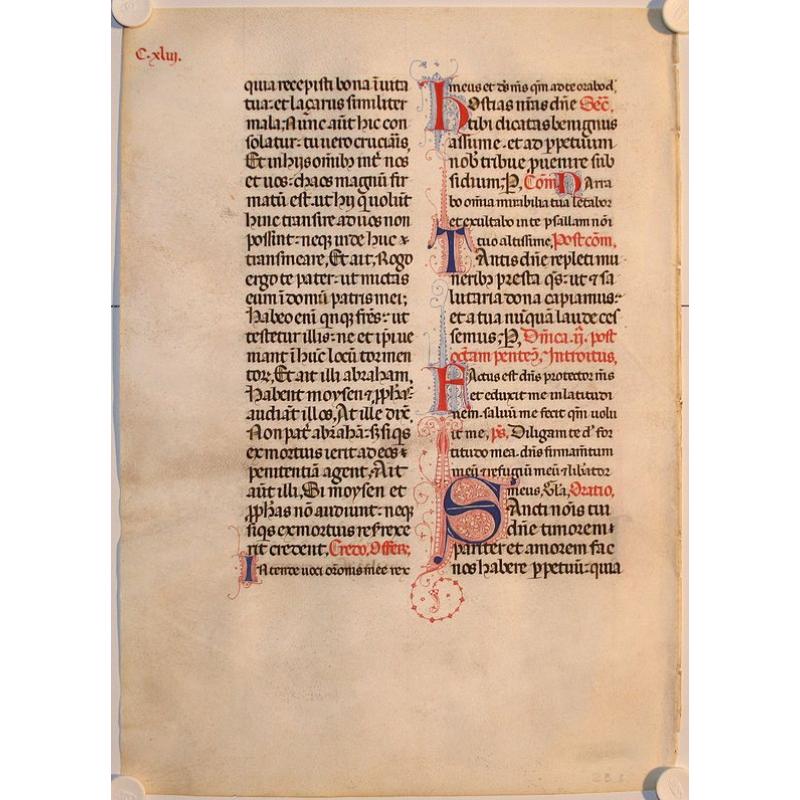 C. xliij.
quia recepisti bona ī uita
tua: et laçarus similiter
mala; Nūnc aūt hic con
solatur: tu uero cruciaris,
Et in hijs oīnibꝫ int̄ nos
et uos: chaos magnū fir
matū est. ut hij qui uolūt
hinc transire ad uos non
possint: neqꝫ inde huc
transmeare, Et ait; Rogo
ergo te pater: ut mictas
eum ī domū patris mei;
Habeo enī qnqꝫ frēs: ut
testetur illis: ne et ipi ue
niant ī hūc locū tormen
toꝝ, Et ait illi abraham,
Habent moysen ⁊ ꝓphas
audiāt illos, At ille dix̄.
Non pat̄ abrahā: sꝫ si qs
ex mortuis ierit ad eos
penitentiā agent, Ait
aūt illi, Si moysen et
ꝓphas nō audiunt: neqꝫ
si qs ex mortuis resrexe
rit credent, Credo, Offer;
Intende uoci orōnis mee rex
meus et ds̄ ms̄ qm̄ ad te orabo d̄.
Hostias nr̄as dn̄e Sec̄.
tibi dicatas benignus
assume. et ad ꝑpetuum
nob̄ tribue ꝓuenire sub
sidium; P, Com̄ Narra
bo omīa mirabilia tua letabor
et exultabo in te psallam nōi
tuo altissime, Postcom̄,
Tantis dn̄e repleti mu
neribꝫ presta qs̄: ut ⁊ sa
lutaria dona capiamus:
et a tua nūquā laude ces
semus; P, Dn̄ica .ij. post
octam pentec̄, Introitus,
Factus est dn̄s protector m̄s
et eduxit me in latitudi
nem. saluū me fecit qm̄ uolu
it me, ps̄, Diligam te d̄ for
titudo mea. dn̄s firmam̄tum
meū ⁊ refugiū meū ⁊ libator
meus, Gl̄a, Oratio,
Sancti nōis tui
dn̄e timorem
pariter et amorem fac
nos habere ꝑpetuū: quia